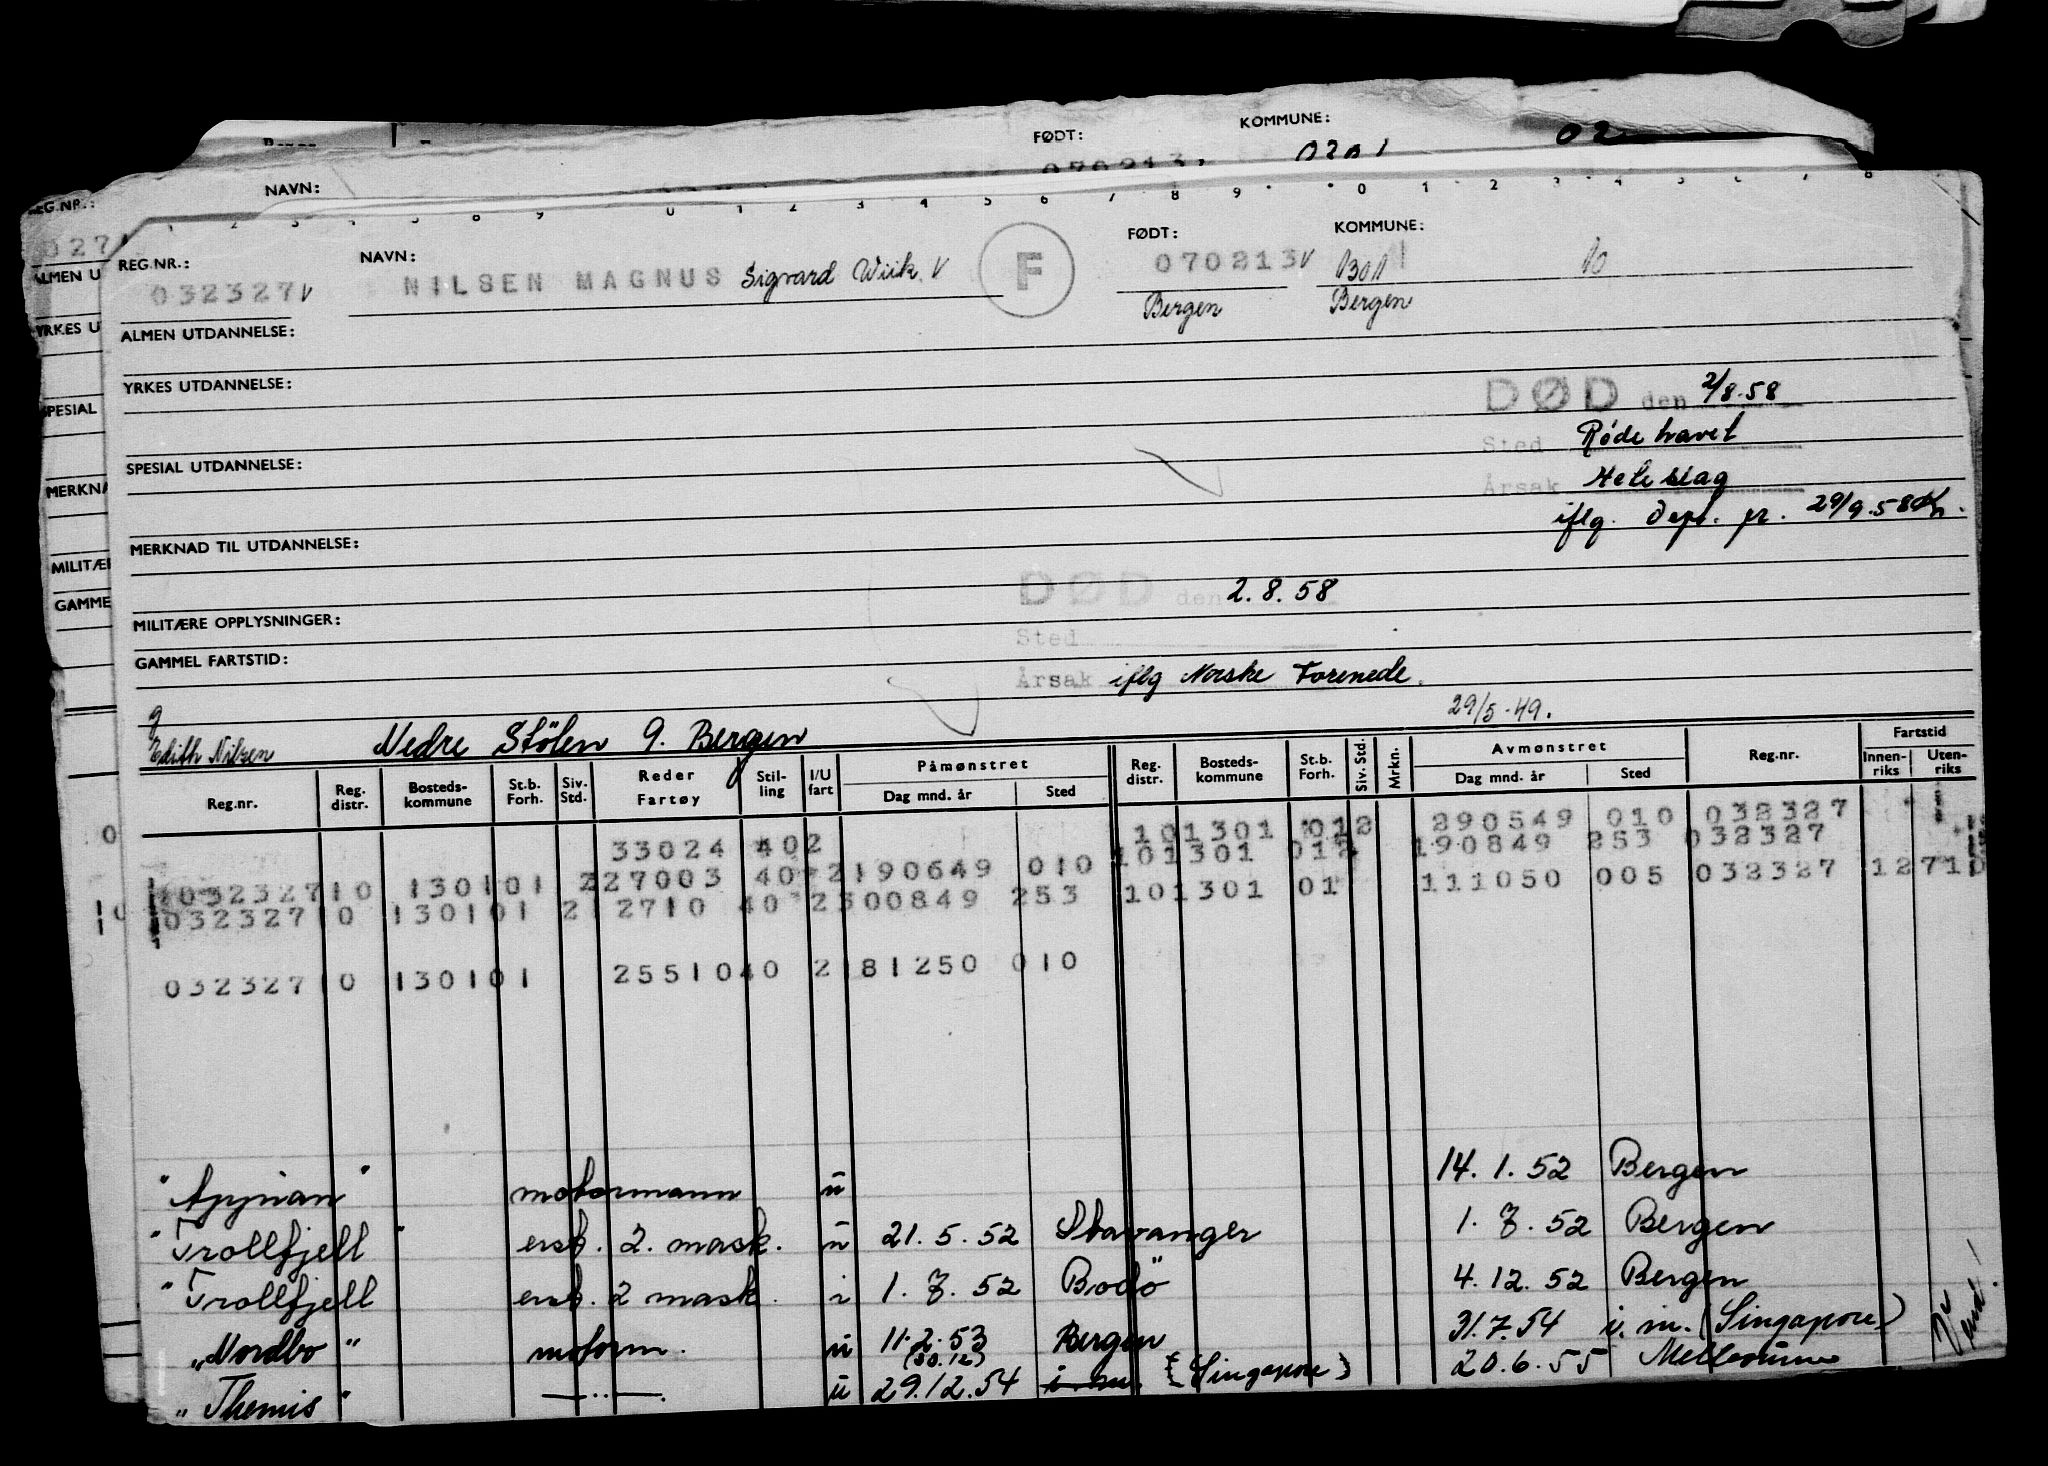 FØDT: KOMMUNE:
070213. 0201 02
REG.NR.: NAVN:
027
ALMEN U
YRKES U
SPESIAL
MERKNA
MILITÆ
GAMME
REG.NR.: NAVN: FØDT: KOMMUNE:
032327 V NILSEN MAGNUS Sigvard Wiik V F 070213 V 1301 10
Bergen Bergen
ALMEN UTDANNELSE:
YRKES UTDANNELSE:
DØD den 2/8.58
Sted Røde havet
SPESIAL UTDANNELSE:
Årsak Heteslag
iflg. Dept. pr. 29/9.58
MERKNAD TIL UTDANNELSE:
DØD den 2.8.58
MILITÆRE OPPLYSNINGER:
Sted
GAMMEL FARTSTID:
Årsak iflg Norske Forenede.
29/5-49.
g
Edith Nilsen Nedre Stölen 9. Bergen
Reg.nr. Reg. distr. Bosteds- kommune St.b. Forh. Siv. Std. Reder Fartøy Stil- ling I/U fart Påmønstret Dag mnd. år Sted Reg. distr. Bosteds- kommune St.b. Forh. Siv. Std. Mrkn. Avmønstret Dag mnd. år Sted Reg.nr. Fartstid Innen- riks Uten- riks
33024 402 101301 012 290549 010 032327
032327 10 130101 2 27003 40 2 190649 010 101301 012 190849 253 032327
032327 10 130101 2 2710 40 2 300849 253 101301 01 111050 005 032327 12710
032327 10 130101 25510 40 2 181250 010
"Appian" motormann u 14.1.52 Bergen
"Trollfjell" erst. 2. mask. u 21.5.52 Stavanger 1.7.52 Bergen
"Trollfjell erst. 2 mask. i 1.7.52 Bodö 4.12.52 Bergen
"Nordbo" motorm. u 11.2.53 Bergen 31.7.54 i. m. (Singapore)
(30.12)
"Themis" —..—. u 29.12.54 i. m. (Singapore) 20.6.55 Melbourne
Vend!